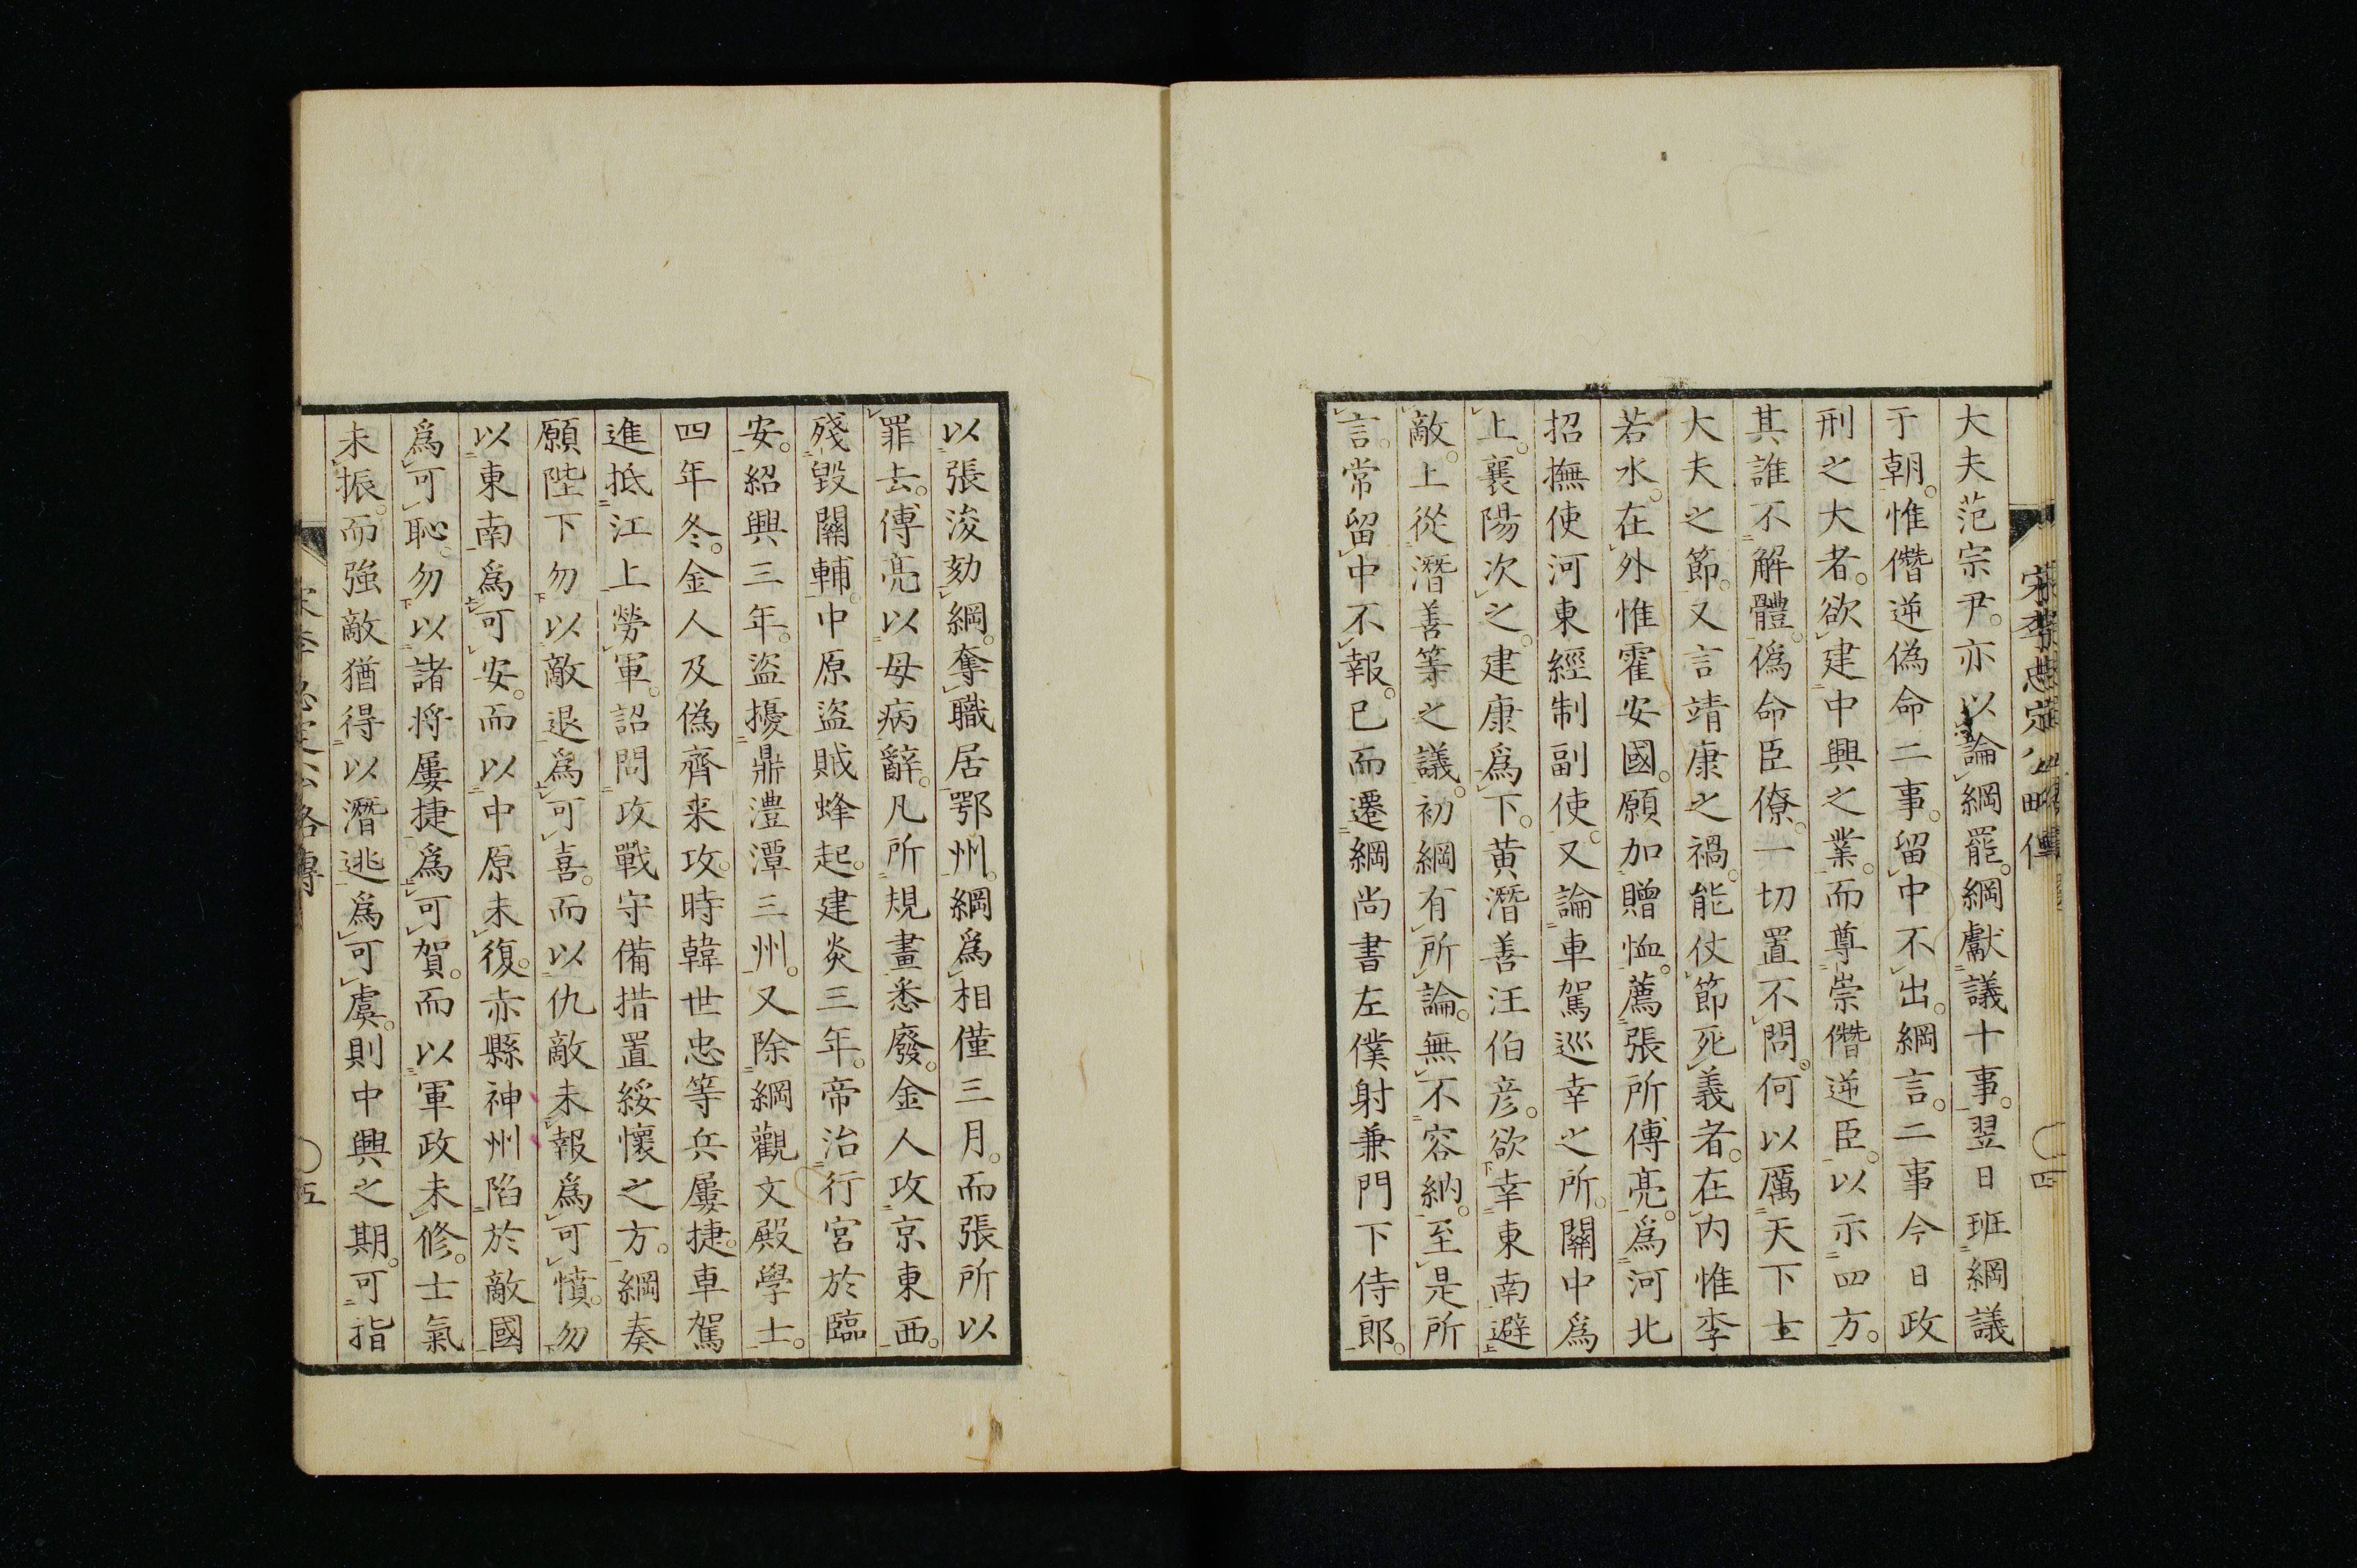 宋李忠定公略傳
四
大夫范宗尹。亦以論綱罷。綱獻議十事。翌日班綱議
于朝。惟僭逆偽命二事。留中不出。綱言。二事今日政
刑之大者。欲建中興之業。而尊崇僭逆臣。以示四方。
其誰不解體。偽命臣僚。一切置不問。何以厲天下士
大夫之節。又言靖康之禍。能仗節死義者。在内惟李
若水。在外惟霍安國。願加贈恤。薦張所傅亮。爲河北
招撫使河東經制副使。又論車駕巡幸之所。關中爲
上。襄陽次之。建康爲下。黄潛善汪伯彦。欲幸東南避
敵。上從潛善等之議。初綱有所論。無不容納。至是所
言。常留中不報。已而遷綱尚書左僕射兼門下侍郎。
以張浚劾綱。奪職居鄂州。綱爲相僅三月。而張所以
罪去。傅亮以母病辭。凡所規畫悉廢。金人攻京東西。
殘毀關輔。中原盜賊蜂起。建炎三年。帝治行宮於臨
安。紹興三年。盜擾鼎澧潭三州。又除綱觀文殿學士。
四年冬。金人及偽齊来攻。時韓世忠等兵屢捷。車駕
進抵江上勞軍。詔問攻戰守備措置綏懷之方。綱奏
願陛下勿以敵退爲可喜。而以仇敵未報爲可憤。勿
以東南爲可安。而以中原未復。赤縣神州陷於敵國
爲可恥。勿以諸将屢捷爲可賀。而以軍政未修。士氣
未振。而強敵猶得以潛逃爲可虞。則中興之期。可指
宋李忠定公略傳
五